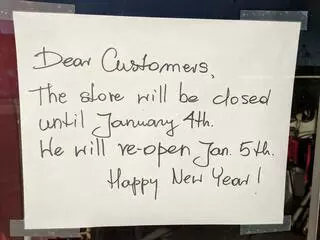 Dear Customers,
The store will be closed
until January 4th.
We will re-open Jan. 5th.
Happy New Year!